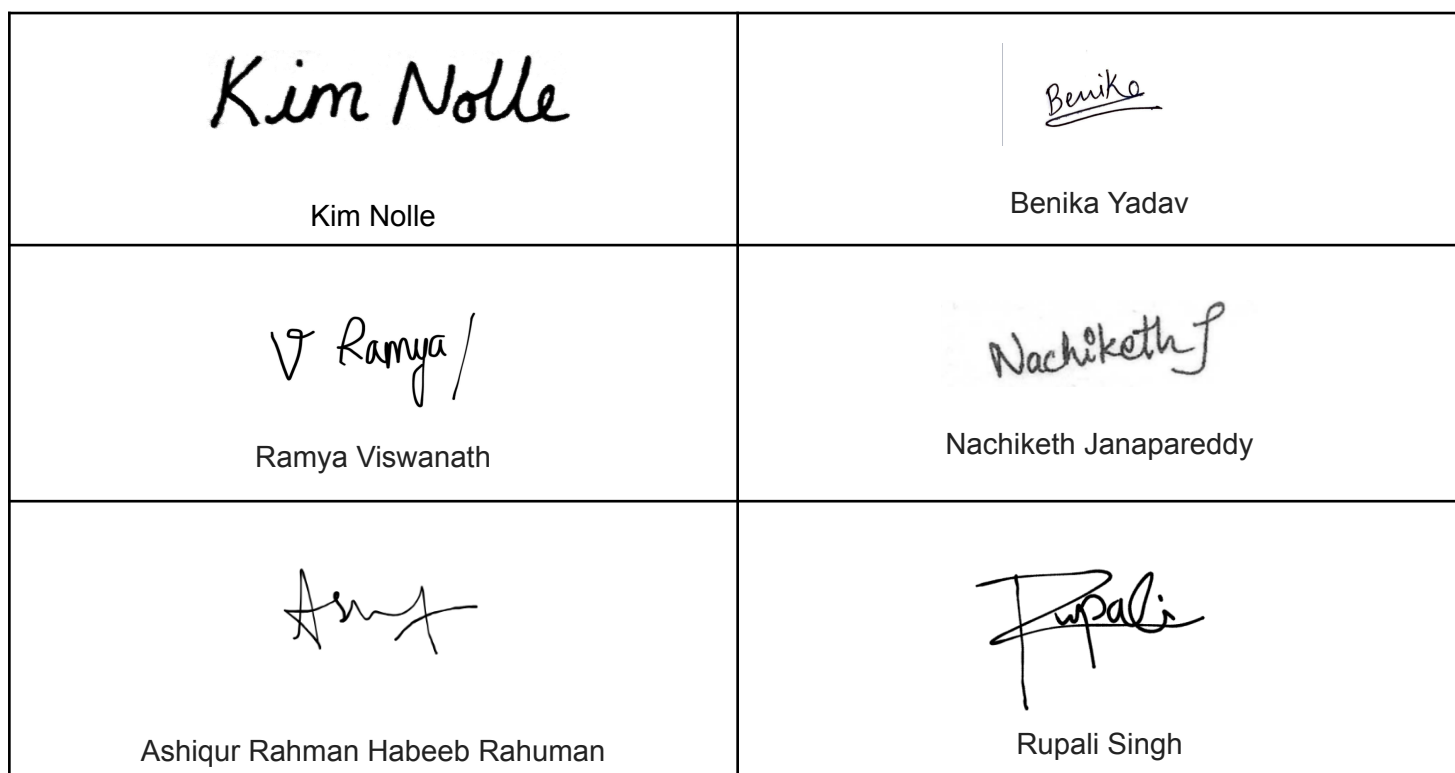 Kim Nolle
Kim Nolle
Benika
Benika Yadav
V Ramya/
Ramya Viswanath
Nachiketh J
Nachiketh Janapareddy
Ashiqur Rahman Habeeb Rahuman
Rupali
Rupali Singh